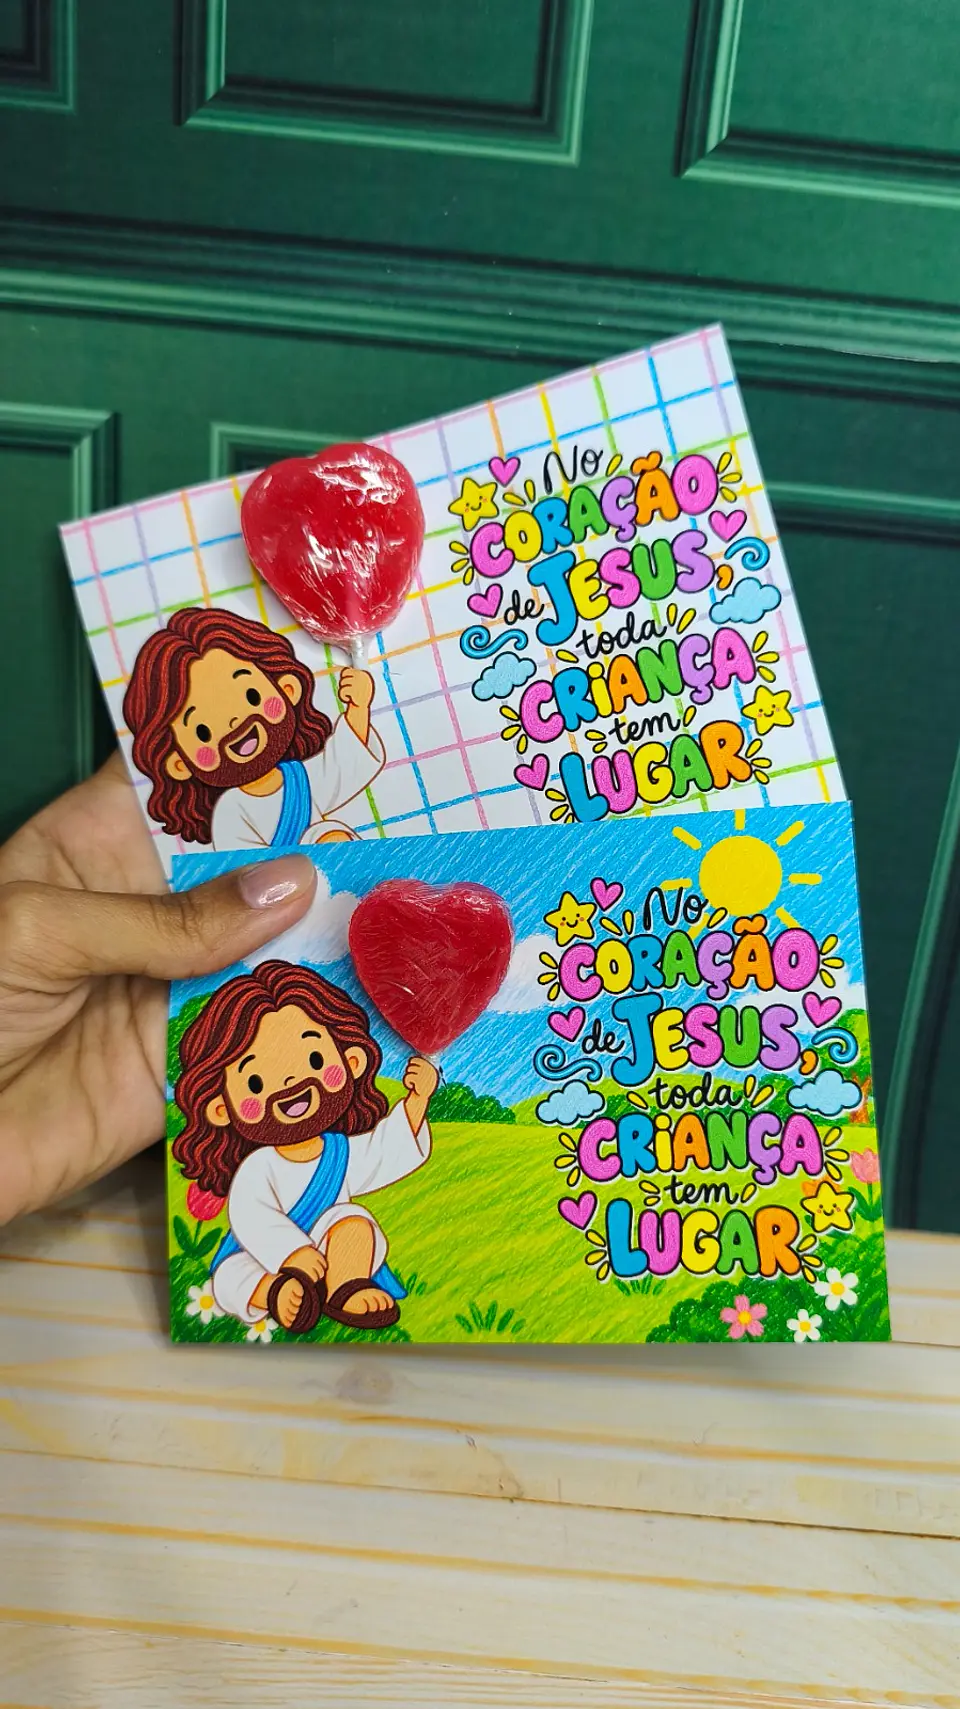 No
CORAÇÃO
de JESUS,
toda
CRIANÇA
tem
LUGAR
No
CORAÇÃO
de JESUS,
toda
CRIANÇA
tem
LUGAR